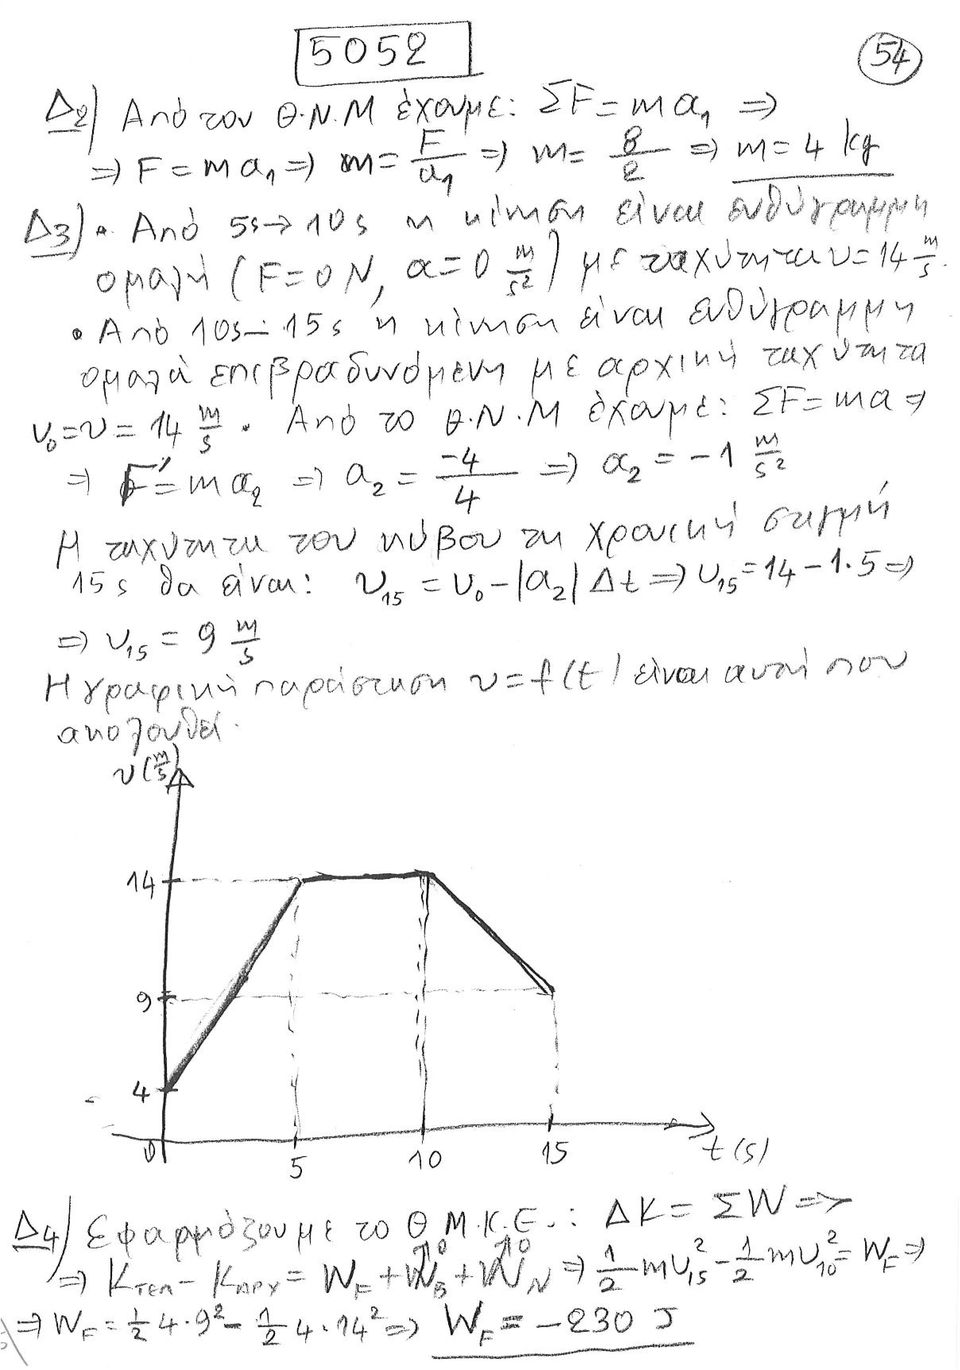 5052
54
Δ2) Από τον Θ.Ν.Μ έχουμε: ΣF = m a₁ ⇒
⇒ F = m a₁ ⇒ m = F/a₁ ⇒ m = 8/2 ⇒ m = 4 kg
Δ3) • Από 5s → 10s η κίνηση είναι ευθύγραμμη
ομαλή (F = 0 N, a = 0 m/s²) με ταχύτητα υ = 14 m/s.
• Από 10s - 15s η κίνηση είναι ευθύγραμμη
ομαλά επιβραδυνόμενη με αρχική ταχύτητα
υ₀ = υ = 14 m/s. Από το Θ.Ν.Μ έχουμε: ΣF = ma ⇒
⇒ F' = m a₂ ⇒ a₂ = -4/4 ⇒ a₂ = -1 m/s²
Η ταχύτητα του κύβου τη χρονική στιγμή
15s θα είναι: υ₁₅ = υ₀ - |a₂| Δt ⇒ υ₁₅ = 14 - 1·5 ⇒
⇒ υ₁₅ = 9 m/s
Η γραφική παράσταση υ = f(t) είναι αυτή που
ακολουθεί.
υ(m/s)
14
9
4
0 5 10 15 t(s)
Δ4) Εφαρμόζουμε το Θ.Μ.Κ.Ε.: ΔK = ΣW ⇒
⇒ Kτελ - Kαρχ = W_F + W_B⁰ + W_N⁰ ⇒ 1/2 mυ₁₅² - 1/2 mυ₁₀² = W_F ⇒
⇒ W_F = 1/2 4·9² - 1/2 4·14² ⇒ W_F = -230 J